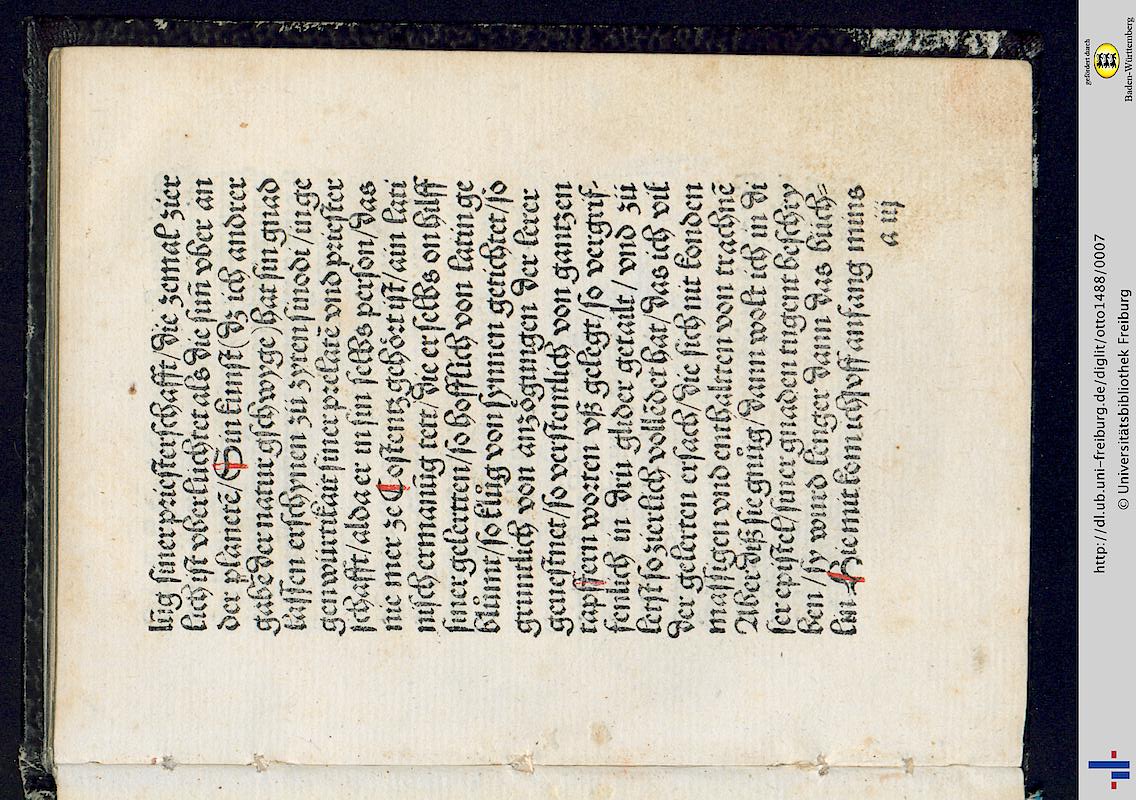 lug siner priesterschafft/die zemal zier
lich ist vberlüchtet als die suñ vber an
der planetē/Sin kunst(dz ich andrer
gabē der natur gschwyge)hat sin gnad
lassen erschynen zů zyten sinodi/in ge
genwürtikait siner prelatē vnd priester
schafft/alda er in sin selbs person/das
nie mer ze Costentz gehört ist/ain lati
nisch ermanūg tett/die er selbs on hilff
siner gelerten/so hofflich von latin ge
blůmt/so klůg von synnen getichtet/so
gruntlich von anzögungen der lerer
geuestnet/so verstentlich von gantzen
tapffern worten vß gelegt/so vergrif-
fenlich in drü glider getailt/vnd zů
letst so zierlich vollēdet hat/das ich vil
der gelerten ersach/die sich nit konden
massigen vnd enthaltten von trachnē
Aber diß sie gnůg/dann wolt ich in di
ser epistel/siner gnaden tugent beschry
ben/sy wurd lenger dann das bůch-
lin Hie mit kom ich vff anfang mins
a iij
gefördert durch
Baden-Württemberg
http://dl.ub.uni-freiburg.de/diglit/otto1488/0007
© Universitätsbibliothek Freiburg